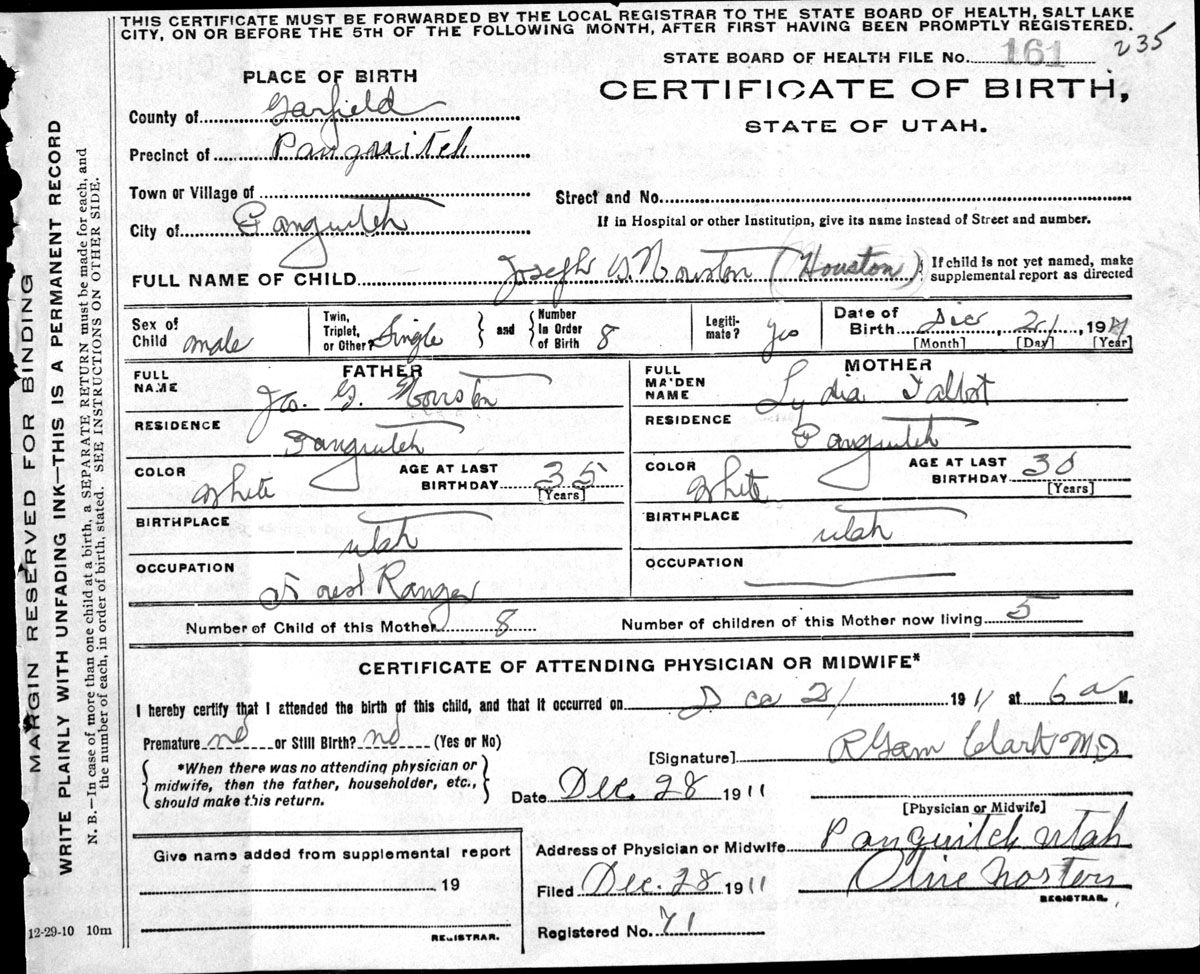 THIS CERTIFICATE MUST BE FORWARDED BY THE LOCAL REGISTRAR TO THE STATE BOARD OF HEALTH, SALT LAKE
CITY, ON OR BEFORE THE 5TH OF THE FOLLOWING MONTH, AFTER FIRST HAVING BEEN PROMPTLY REGISTERED.
235
STATE BOARD OF HEALTH FILE No. 161
CERTIFICATE OF BIRTH,
STATE OF UTAH.
PLACE OF BIRTH
County of Garfield
Precinct of Panguitch
Town or Village of
Street and No.
City of Panguitch
If in Hospital or other Institution, give its name instead of Street and number.
FULL NAME OF CHILD Joseph W. Houston (Houston) { If child is not yet named, make
supplemental report as directed
Sex of Child male
Twin, Triplet, or Other? Single } and { Number in Order of Birth 8
Legitimate? yes
Date of Birth Dec 21, 1911
[Month] [Day] [Year]
FATHER
FULL NAME Jos. G. Houston
RESIDENCE Panguitch
COLOR White
AGE AT LAST BIRTHDAY 35
[Years]
BIRTHPLACE Utah
OCCUPATION Forest Ranger
MOTHER
FULL MAIDEN NAME Lydia Talbot
RESIDENCE Panguitch
COLOR White
AGE AT LAST BIRTHDAY
[Years]
BIRTHPLACE Utah
OCCUPATION
Number of Child of this Mother 8
Number of children of this Mother now living 5
CERTIFICATE OF ATTENDING PHYSICIAN OR MIDWIFE*
I hereby certify that I attended the birth of this child, and that it occurred on Dec 21 1911 at 6 a M.
Premature no or Still Birth? no (Yes or No)
*When there was no attending physician or
midwife, then the father, householder, etc.,
should make this return.
[Signature] R Garn Clark M.D.
Date Dec. 28 1911
[Physician or Midwife]
Address of Physician or Midwife Panguitch Utah
Filed Dec. 28 1911 Olive Norton
REGISTRAR.
Registered No. 71
Give name added from supplemental report
19
REGISTRAR.
12-29-10 10m
MARGIN RESERVED FOR BINDING
WRITE PLAINLY WITH UNFADING INK—THIS IS A PERMANENT RECORD
N. B.—In case of more than one child at a birth, a SEPARATE RETURN must be made for each, and
the number of each, in order of birth, stated. SEE INSTRUCTIONS ON OTHER SIDE.